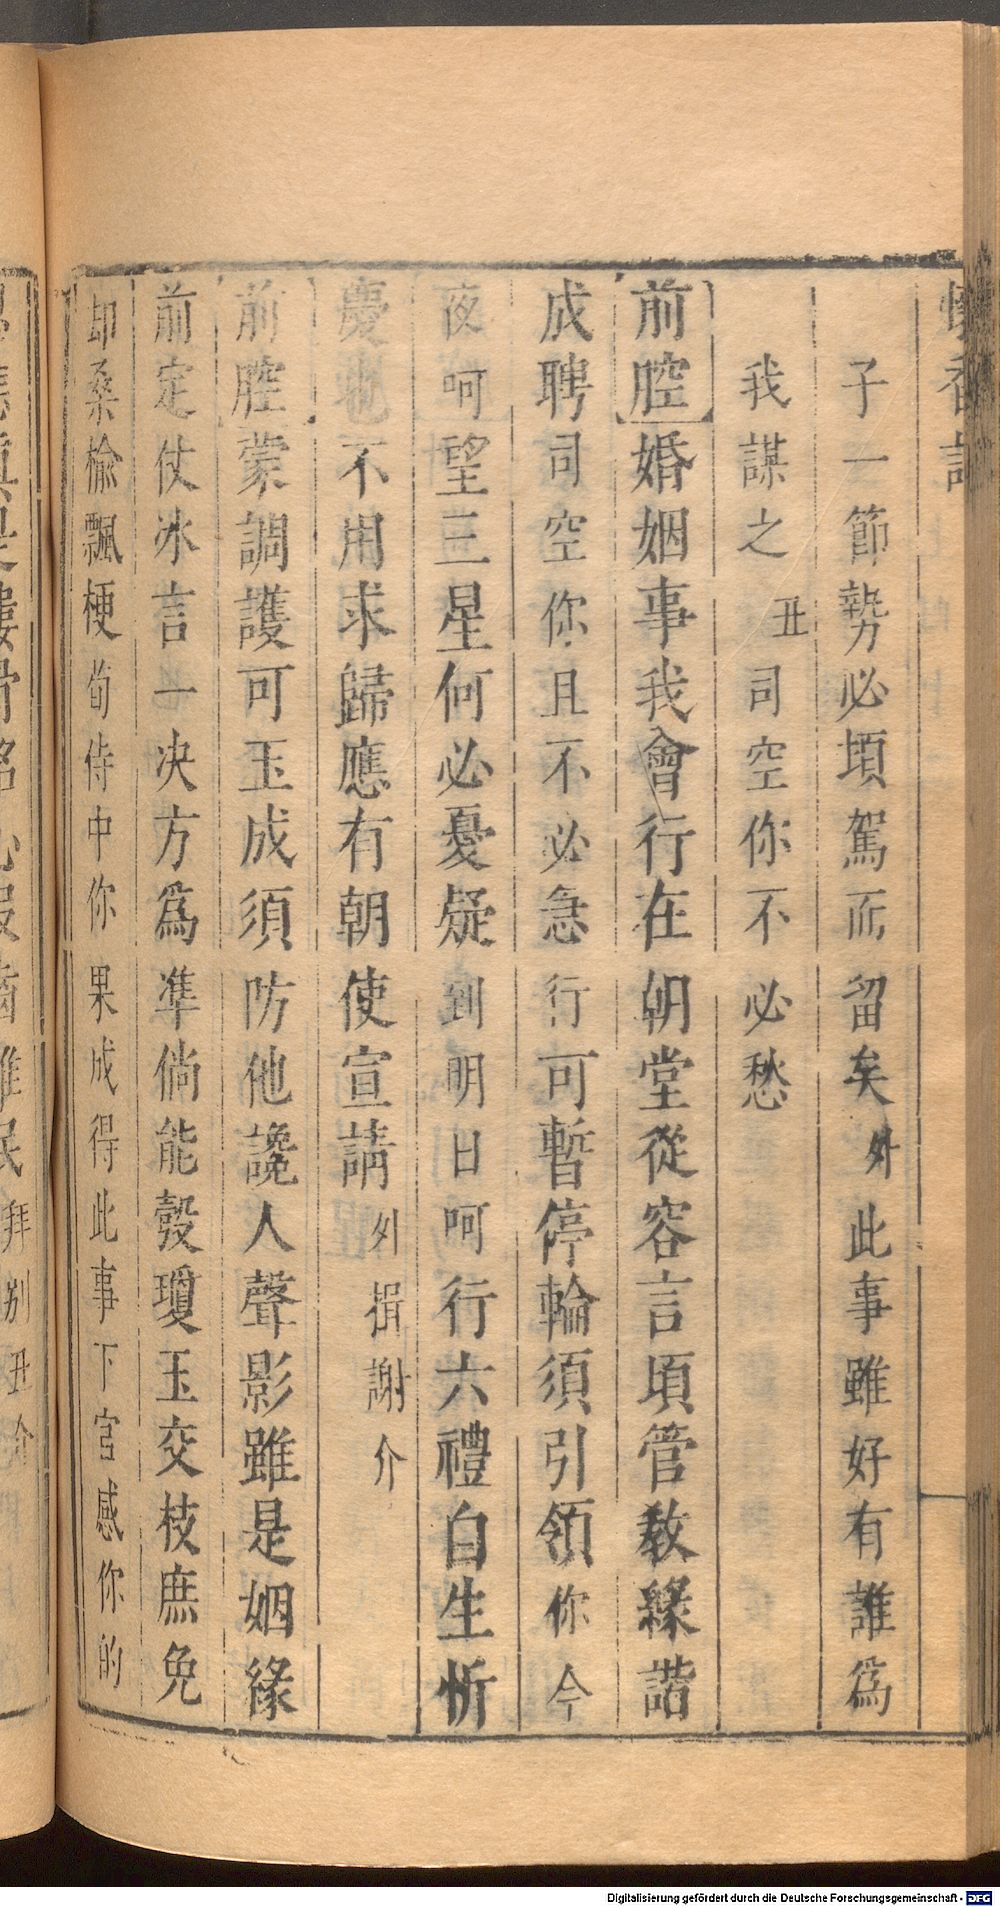 懷香記
子一節勢必頃駕而留矣外此事雖好有誰為
我謀之丑司空你不必愁
前腔婚姻事我會行在朝堂從容言頃管教緣諧
成聘司空你且不必急行可暫停輪須引領你今
夜呵望三星何必憂疑到明日呵行六禮自生忻
慶也不用求歸應有朝使宣請外揖謝介
前腔蒙調護可玉成須防他讒人聲影雖是姻緣
前定仗冰言一决方為準倘能彀瓊玉交枝庶免
却桑榆飄梗荀侍中你果成得此事下官感你的
拜别丑介
Digitalisierung gefördert durch die Deutsche Forschungsgemeinschaft - DFG